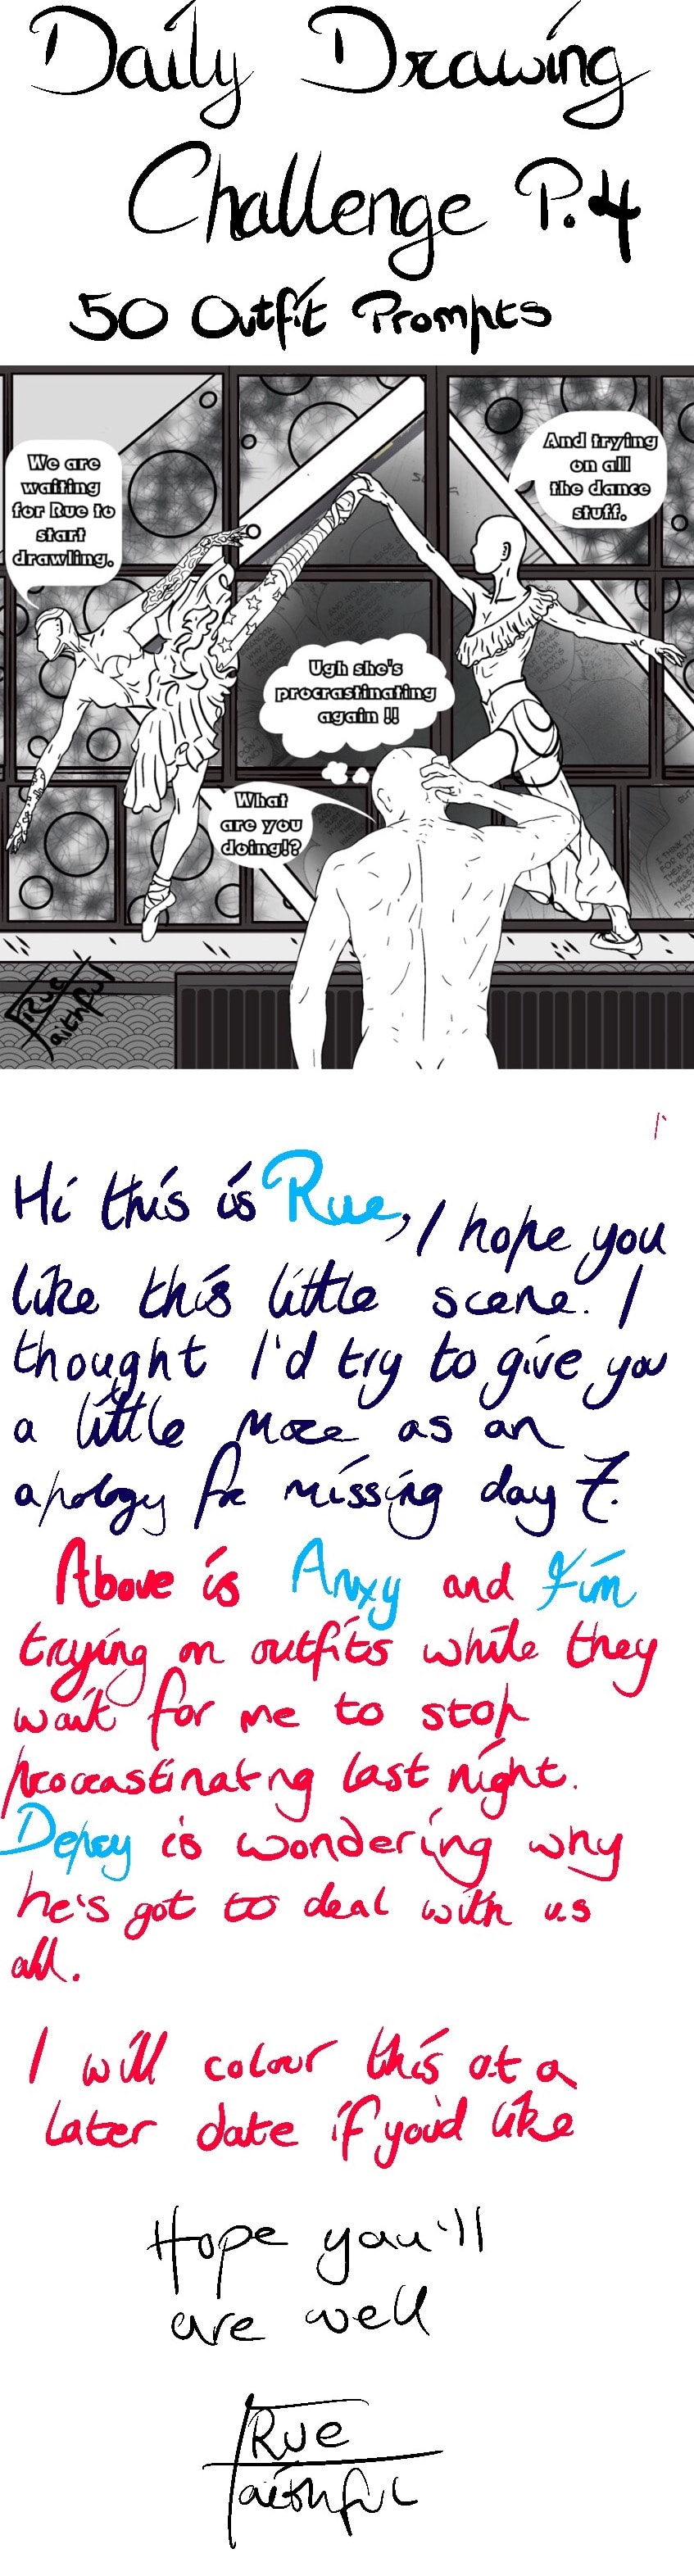 Daily Drawing
Challenge P.4
50 Outfit Prompts
We are
waiting
for Rue to
start
drawling.
And trying
on all
the dance
stuff.
Ugh she's
procrastinating
again !!
What
are you
doing!?
Rue
Faithful
Hi this is Rue, I hope you
like this little scene. I
thought I'd try to give you
a little more as an
apology for missing day 7.
Above is Anxy and Fim
trying on outfits while they
wait for me to stop
procrastinatng last night.
Depsy is wondering why
he's got to deal with us
all.
I will colour this at a
later date if you'd like
Hope you'll
are well
Rue
Faithful